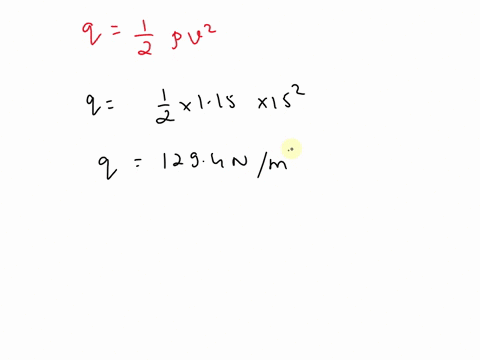 q = 1/2 ρv²
q = 1/2 × 1.15 × 15²
q = 129.4 N/m